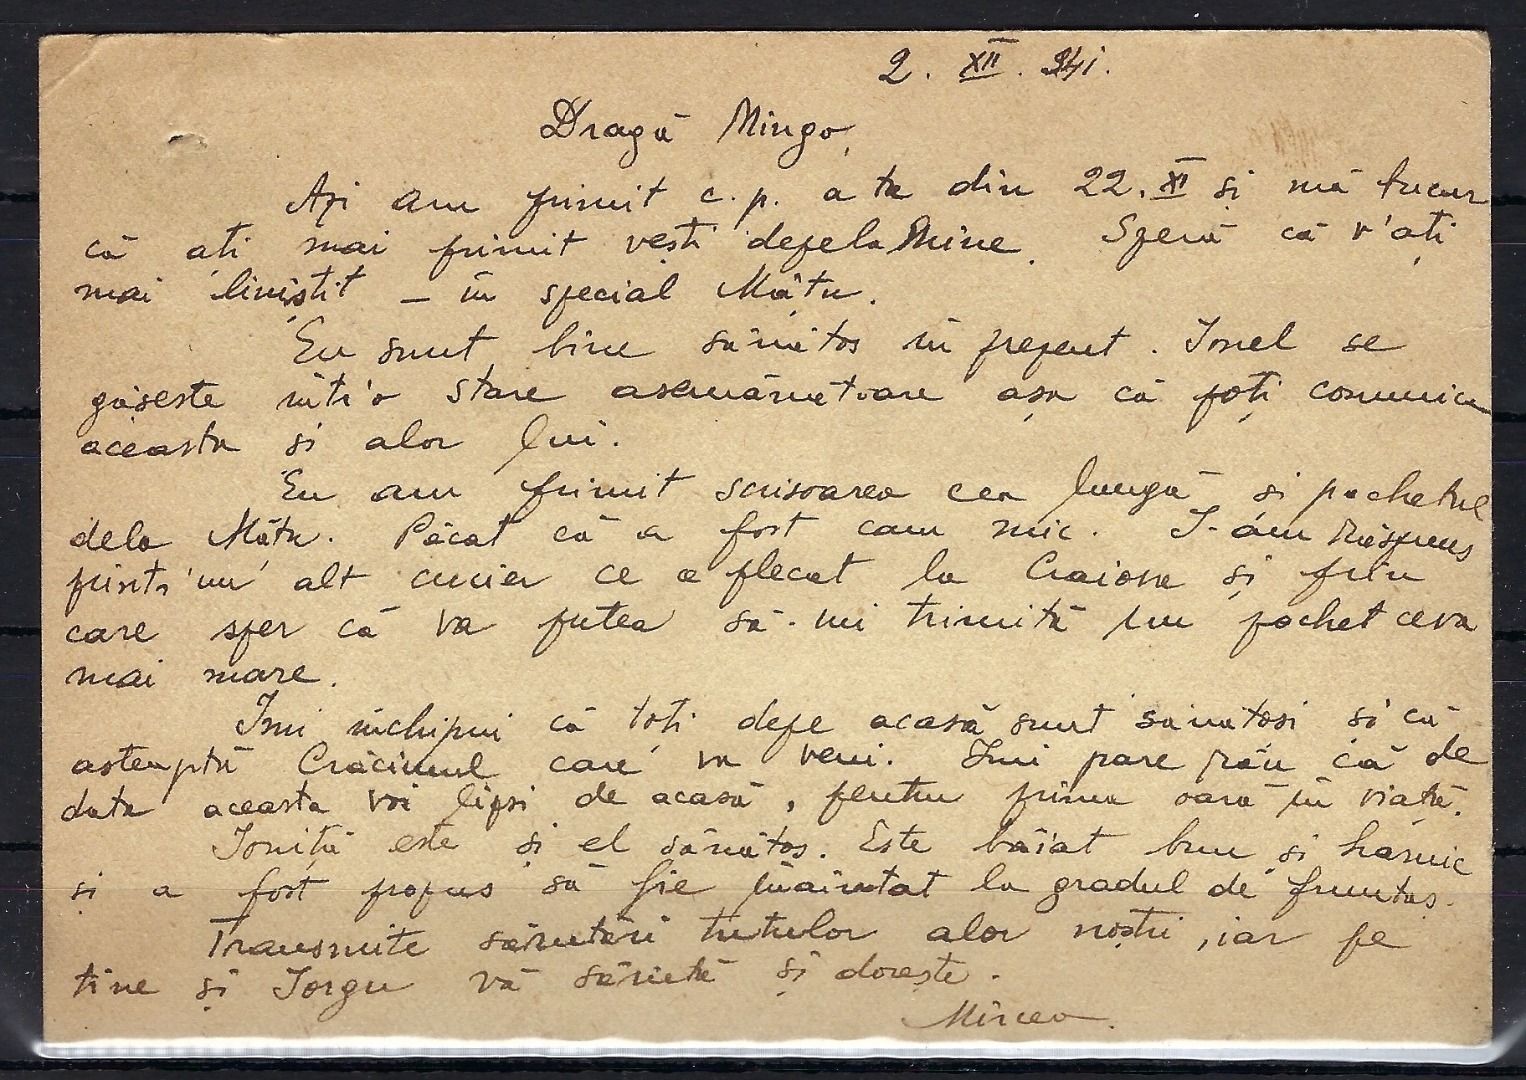 2. XII. 941.
Dragă Mingo,
Azi am primit c.p. a ta din 22.XI și mă bucur
că ați mai primit vești depela mine. Speră că v'ați
mai liniștit – în special Mătu.
Eu sunt bine sănătos în prezent. Ionel se
găsește într'o stare asemănătoare așa că poți comunica
aceasta și alor lui.
Eu am primit scrisoarea cea lungă și pachetul
dela Mătu. Păcat că a fost cam mic. I-am răspuns
printr'un alt curier ce a plecat la Craiova și prin
care sper că va putea să-mi trimită un pachet ceva
mai mare.
Îmi închipui că toți depe acasă sunt sănătosi și că
asteaptă Crăciunul care va veni. Îmi pare rău că de
data aceasta voi lipsi de acasă, pentru prima oară în viață.
Ioniță este și el sănătos. Este băiat bun și harnic
și a fost propus să fie înaintat la gradul de fruntaș.
Transmite sărutări tutulor alor noștri, iar pe
tine și Iorgu vă sărută și dorește.
Mircea.